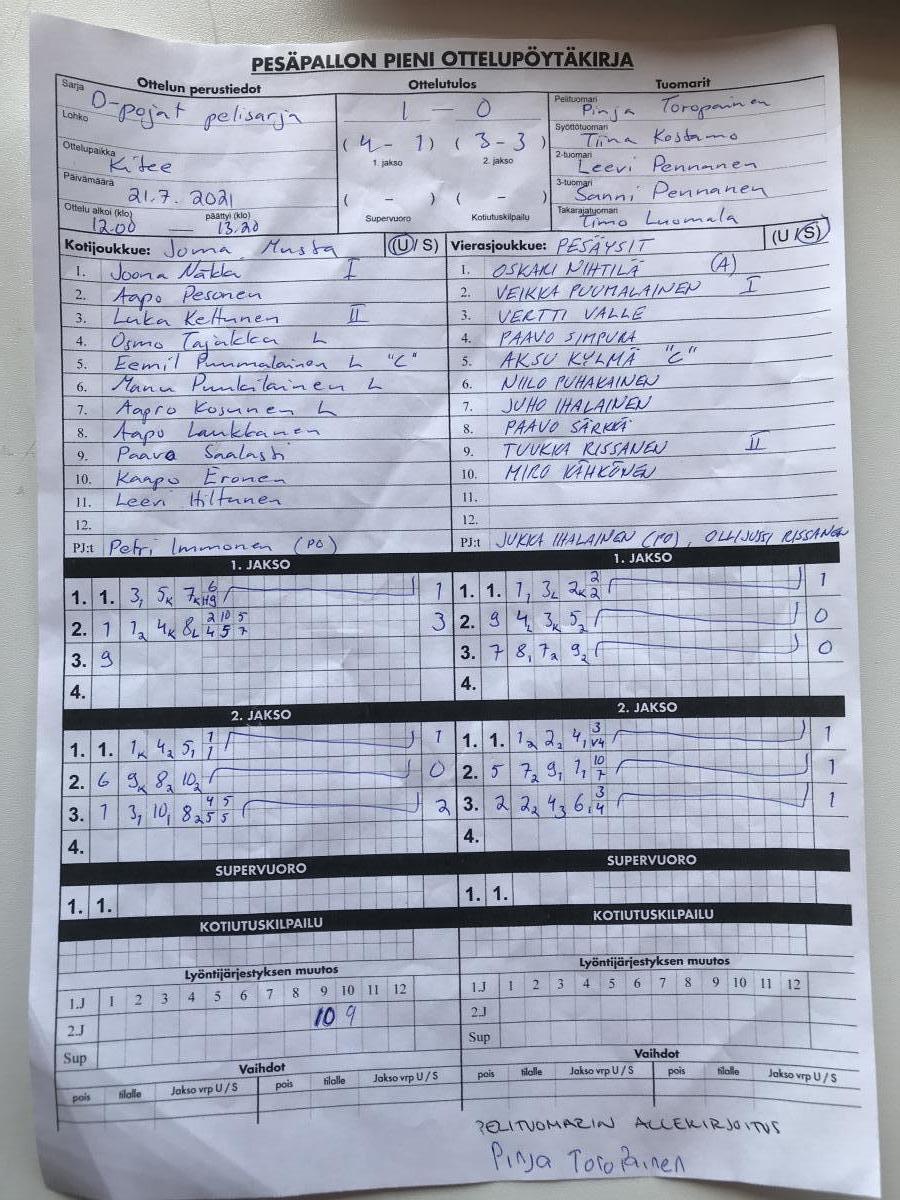 PESÄPALLON PIENI OTTELUPÖYTÄKIRJA
Ottelun perustiedot Ottelutulos Tuomarit
Sarja D-pojat pelisarja
Lohko
Ottelupaikka Kitee
Päivämäärä 21.7. 2021
Ottelu alkoi (klo) päättyi (klo)
12.00 — 13.20
1 — 0
( 4 - 1 ) ( 3 - 3 )
1. jakso 2. jakso
( - ) ( - )
Supervuoro Kotiutuskilpailu
Pelituomari Pinja Toropainen
Syöttötuomari Tiina Kostamo
2-tuomari Leevi Pennanen
3-tuomari Sanni Pennanen
Takarajatuomari Timo Luomala
Kotijoukkue: Joma, Musta (U / S)
1. Joona Näkka I
2. Aapo Pesonen
3. Luka Keltunen II
4. Osmo Tajakka L
5. Eemil Puumalainen L "C"
6. Manu Puukilainen L
7. Aapro Kosunen L
8. Aapo Laukkanen
9. Paavo Saalasti
10. Kaapo Eronen
11. Leevi Hiltunen
12.
PJ:t Petri Immonen (PO)
Vierasjoukkue: PESÄYSIT (U / S)
1. OSKARI NIHTILÄ (A)
2. VEIKKA PUUMALAINEN I
3. VERTTI VALLE
4. PAAVO SIMPURA
5. AKSU KYLMÄ "C"
6. NIILO PUHAKAINEN
7. JUHO IHALAINEN
8. PAAVO SÄRKKÄ
9. TUUKKA RISSANEN II
10. MIRO KÄHKÖNEN
11.
12.
PJ:t JUKKA IHALAINEN (PO), OLLIJUSSI RISSANEN
1. JAKSO
1. 1. 3, 5K 7K 6 H9 1
2. 1 12 4K 8L 2 10 5 4 5 7 3
3. 9
4.
2. JAKSO
1. 1. 1K 42 5, 1 1 1
2. 6 9K 82 102 0
3. 1 3, 10, 82 4 5 5 5 2
4.
SUPERVUORO
1. 1.
KOTIUTUSKILPAILU
1. JAKSO
1. 1. 1, 3L 2K 2 2 1
2. 9 4L 3K 52 0
3. 7 8, 72 92 0
4.
2. JAKSO
1. 1. 12 22 4, 3 V4 1
2. 5 72 9, 1, 10 7 1
3. 2 22 43 6, 3 4 1
4.
SUPERVUORO
1. 1.
KOTIUTUSKILPAILU
Lyöntijärjestyksen muutos
1.J 1 2 3 4 5 6 7 8 9 10 11 12
2.J 10 9
Sup
Vaihdot
pois tilalle Jakso vrp U / S pois tilalle Jakso vrp U / S
Lyöntijärjestyksen muutos
1.J 1 2 3 4 5 6 7 8 9 10 11 12
2.J
Sup
Vaihdot
pois tilalle Jakso vrp U / S pois tilalle Jakso vrp U / S
PELITUOMARIN ALLEKIRJOITUS
Pinja Toropainen